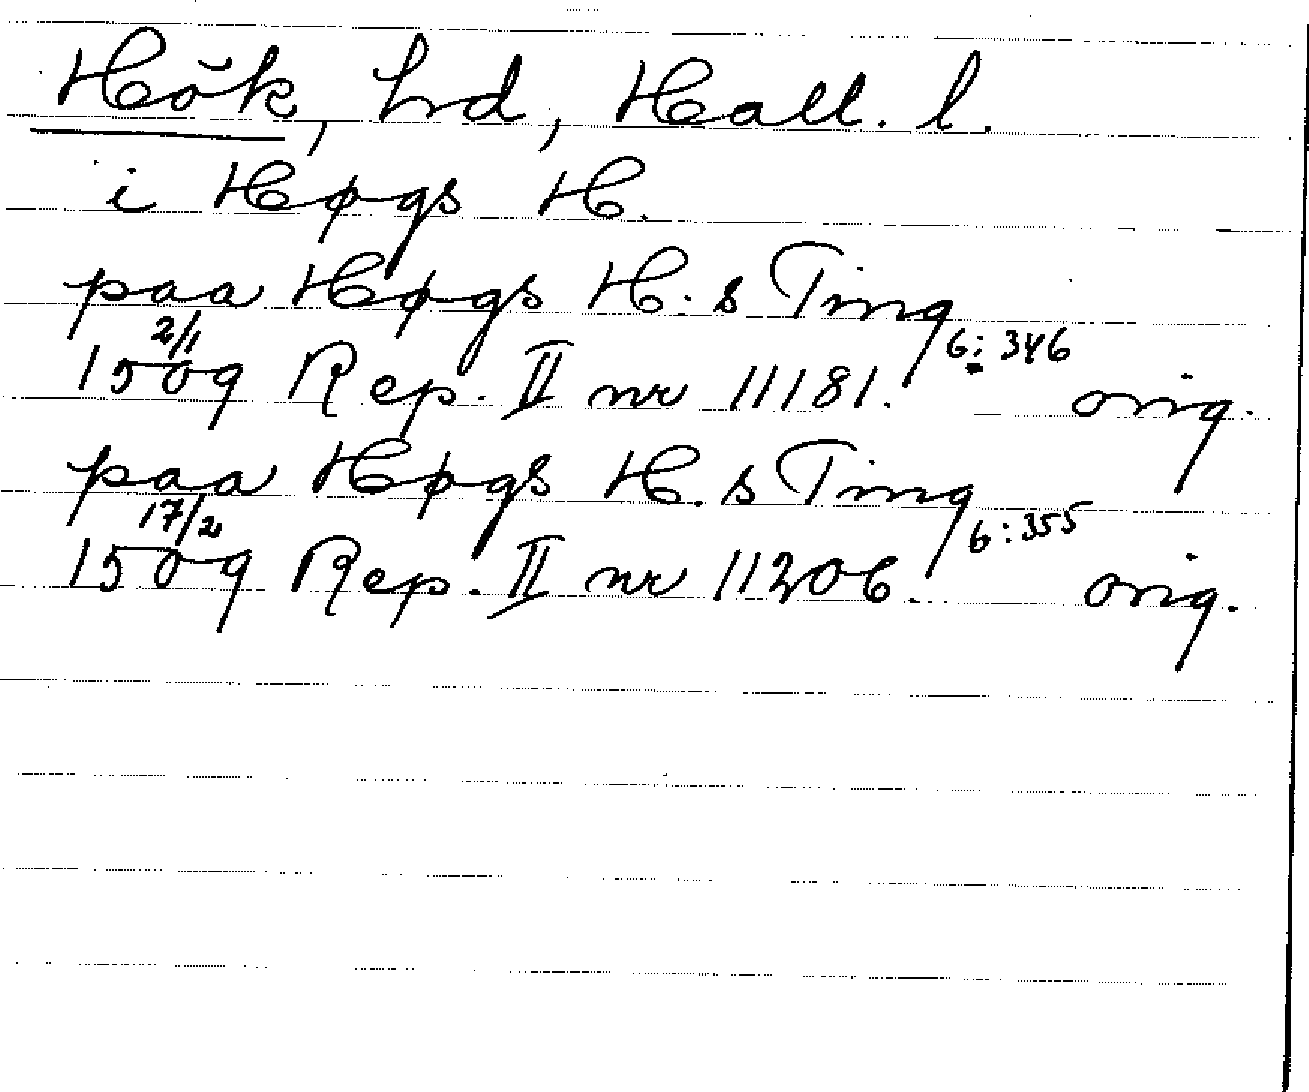 Hök, hd, Hall. l.
i Høgs H.
paa Høgs H.s Ting
2/1 1509 Rep. II nr 11181. 6:346 orig.
paa Høgs H.s Ting
17/2 1509 Rep. II nr 11206. 6:355 orig.